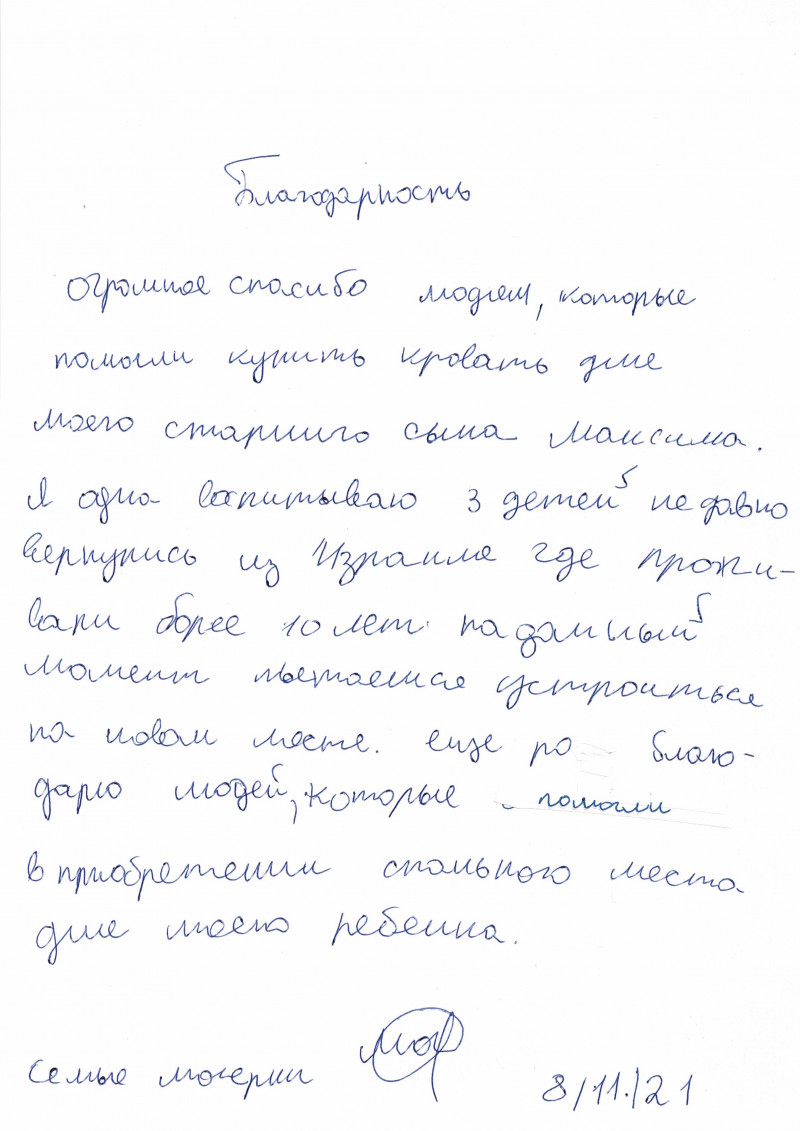 Благодарность
огромное спасибо людям, которые
помогли купить кровать для
моего старшего сына Максима.
Я одна воспитываю 3 детей недавно
вернулись из Израиля где прожи-
вали более 10 лет. на данный
момент пытаемся устроиться
на новом месте. еще ра благо-
дарю людей, которые помогли
в приобретении спального места
для моего ребенка.
семья
8/11/21